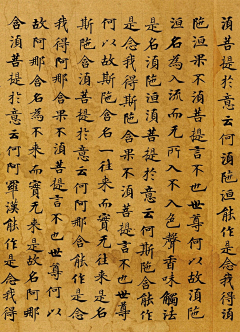 湏菩提於意云何湏陁洹能作是念我得湏
陁洹果不湏菩提言不也世尊何以故湏陁
洹名為入流而无所入不入色聲香味觸法
是名湏陁洹湏菩提於意云何斯陁含能作
是念我得斯陁含果不湏菩提言不也世尊
何以故斯陁含名一往来而實无往来是名
斯陁含湏菩提於意云何阿那含能作是念
我得阿那含果不湏菩提言不也世尊何以
故阿那含名為不来而實无来是故名阿那
含湏菩提於意云何阿羅漢能作是念我得